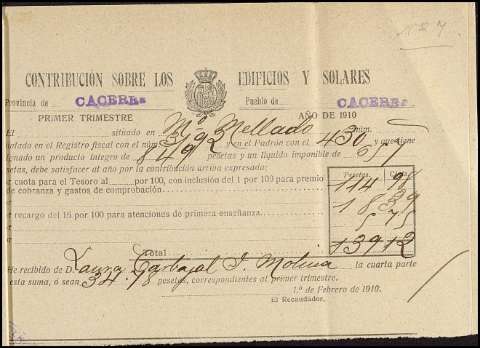 Nº 7
CONTRIBUCIÓN SOBRE LOS EDIFICIOS Y SOLARES
Provincia de CACERES Pueblo de CACERES
PRIMER TRIMESTRE AÑO DE 1910
El situado en Mellado núm.
en el Registro fiscal con el núm. 392 y en el Padrón con el 430 y que tiene
asignado un producto íntegro de 849 pesetas y un líquido imponible de
pesetas, debe satisfacer al año por la contribución arriba expresada:
Pesetas.
Por cuota para el Tesoro al por 100, con inclusión del 1 por 100 para premio 114 98
de cobranza y gastos de comprobación. 18 39
El recargo del 16 por 100 para atenciones de primera enseñanza. 5 75
Total 139 12
He recibido de D. Laura Carbajal I. Molina la cuarta parte
de esta suma, ó sean 34.78 pesetas, correspondientes al primer trimestre.
1.º de Febrero de 1910.
El Recaudador.